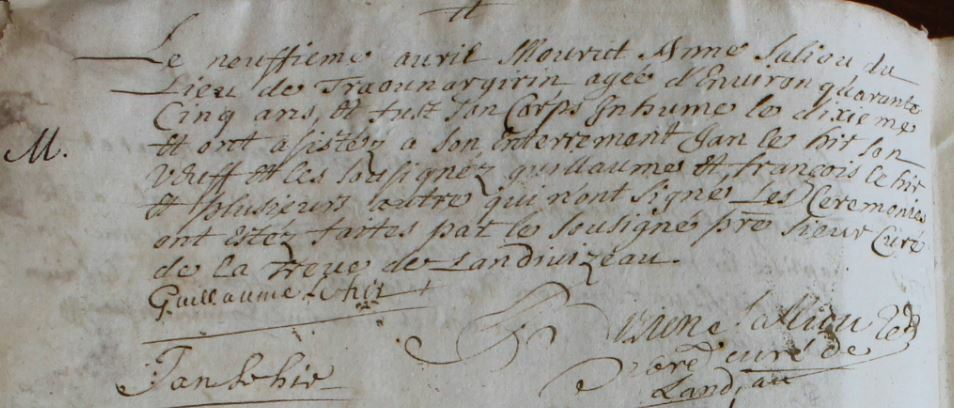 Le neuffieme avril Mourut Anne Saliou du
Lieu de Traounargirin agée d'Environ quarante
Cinq ans, et fust son Corps Inhume le dixieme
M.
et ont asistez a son Enterrement Jan le hir son
veuff et les sousignez guillaume et françois le hir
et plusieurs autre qui n'ont signé Les Ceremonies
ont Estez faites par le sousigné pre sieur Curé
de la Treve de Landivizeau.
Guillaume le hir
Salliou
curé de
Jan le hir